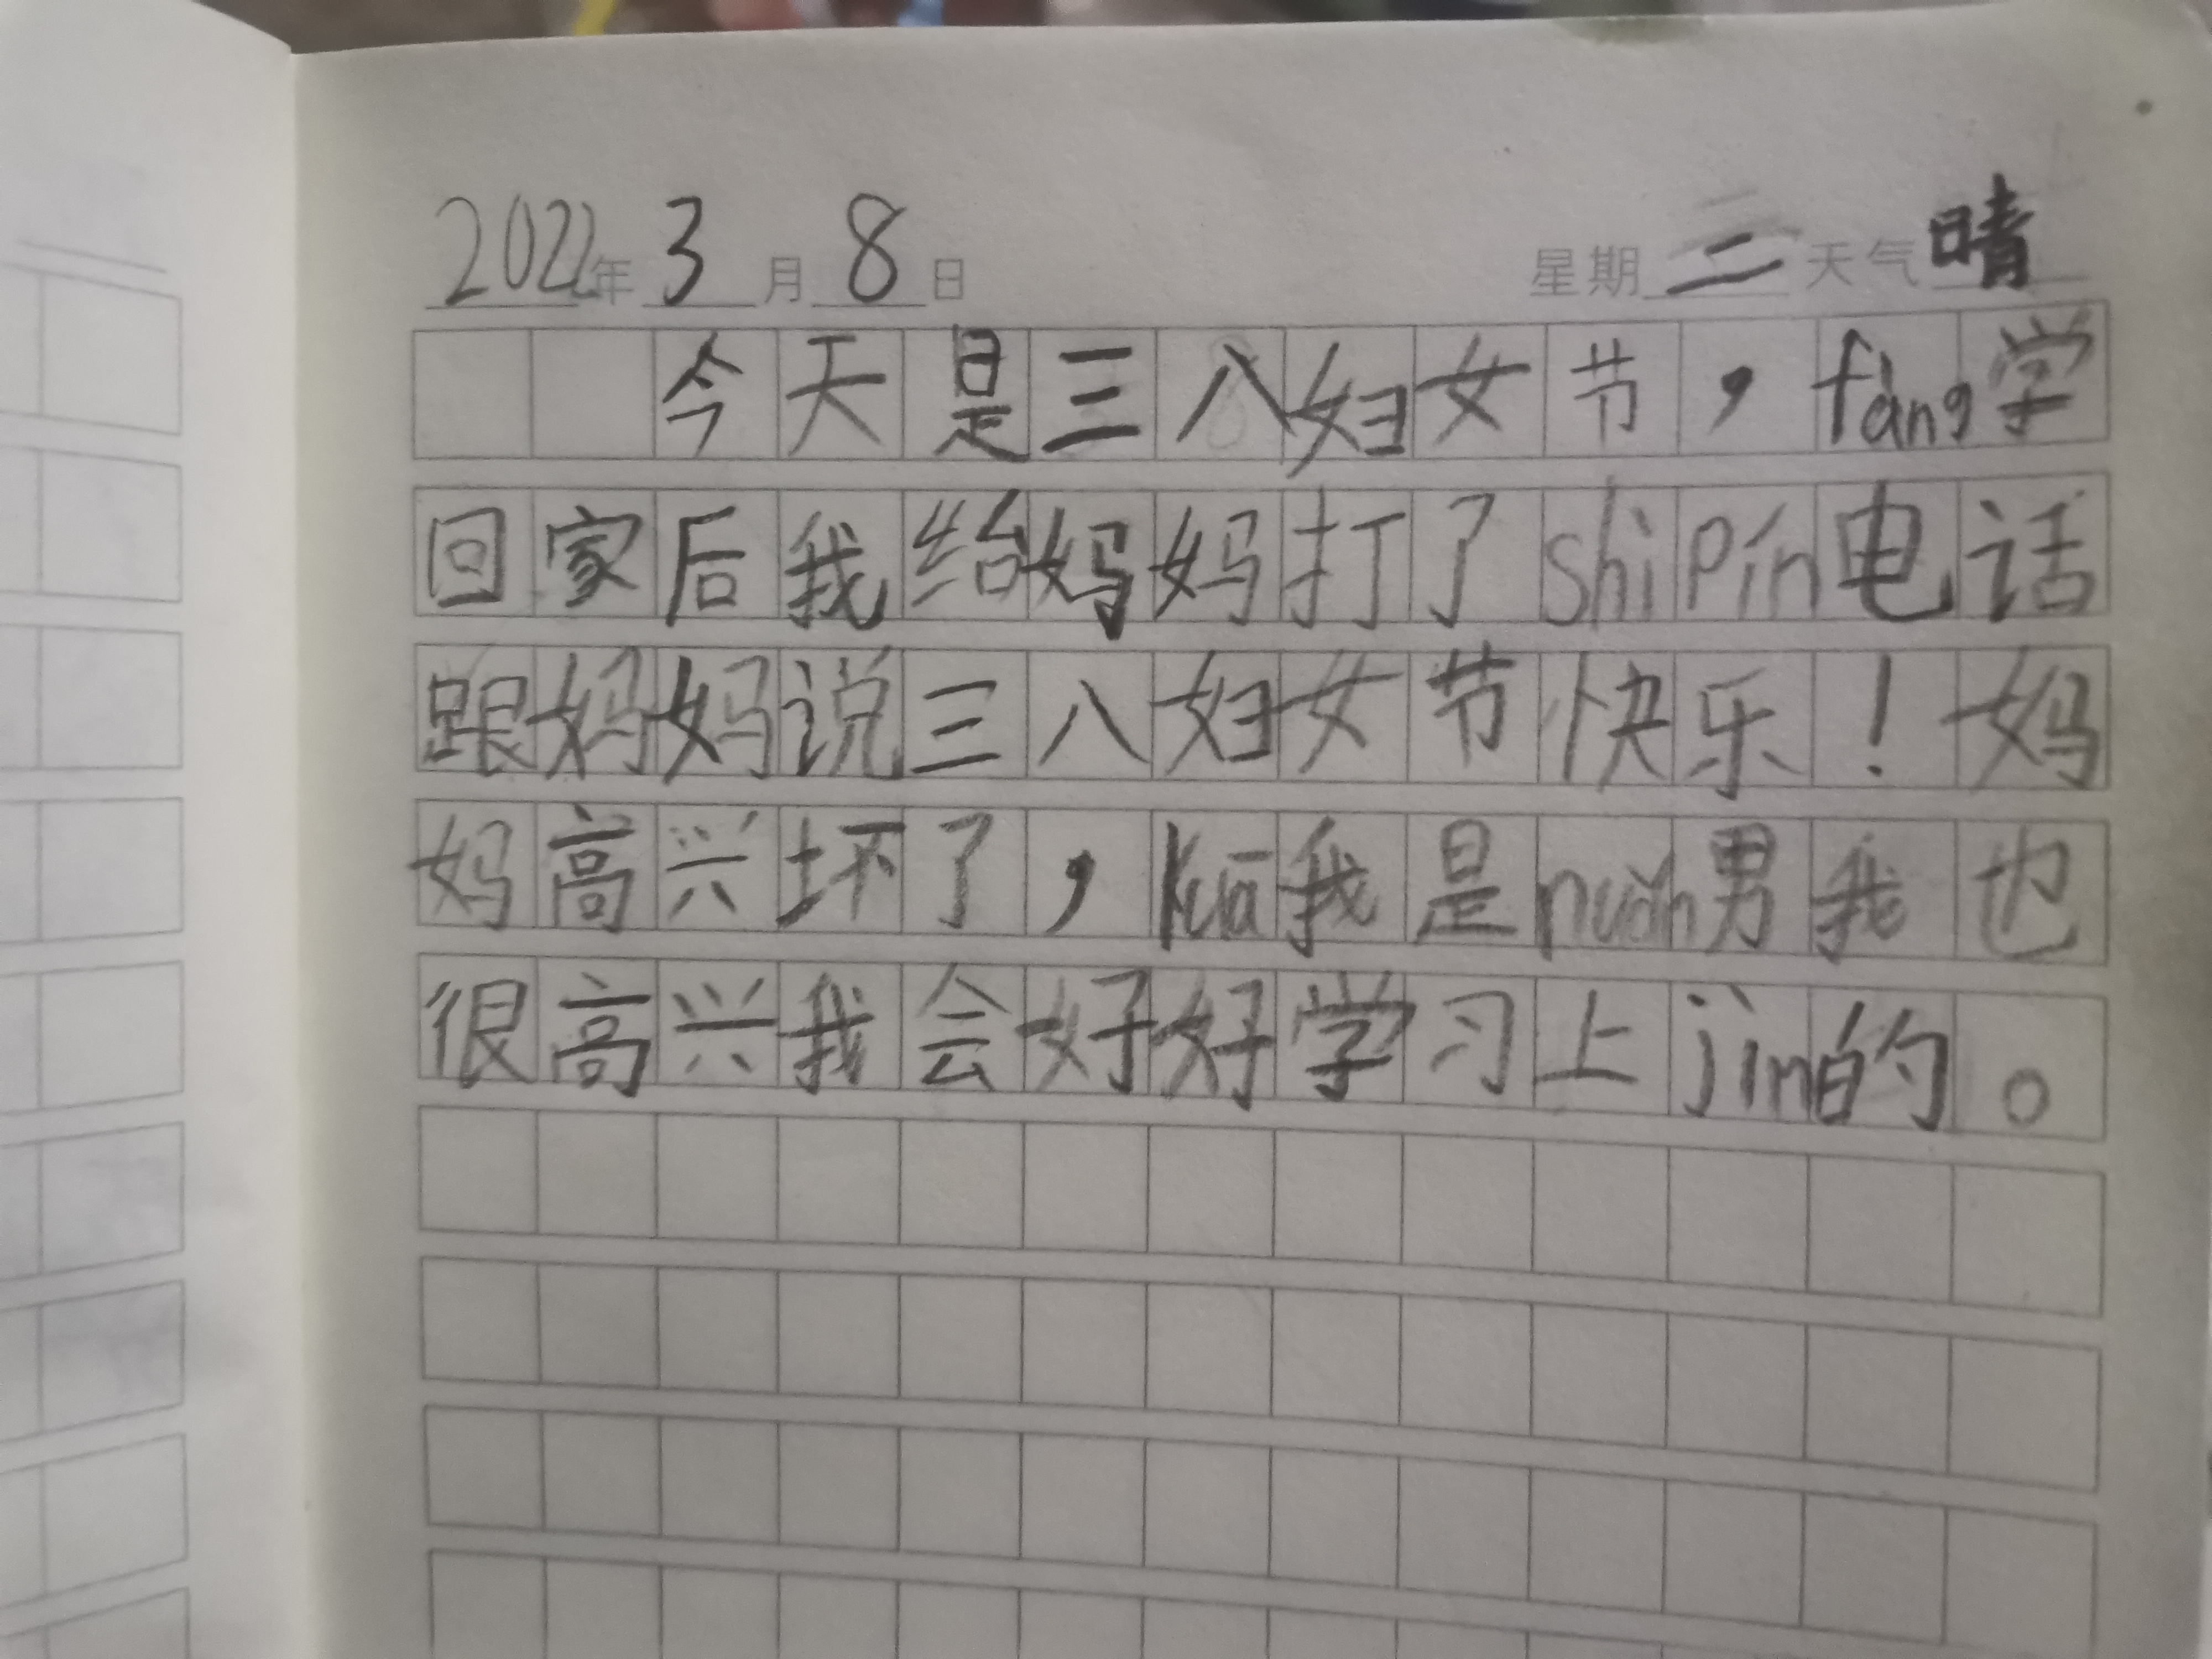 2022年3月8日 星期二天气晴
今天是三八妇女节，fàng学
回家后我给妈妈打了shipín电话
跟妈妈说三八妇女节快乐！妈
妈高兴坏了，kuā我是nuǎn男我也
很高兴我会好好学习上jìn的。